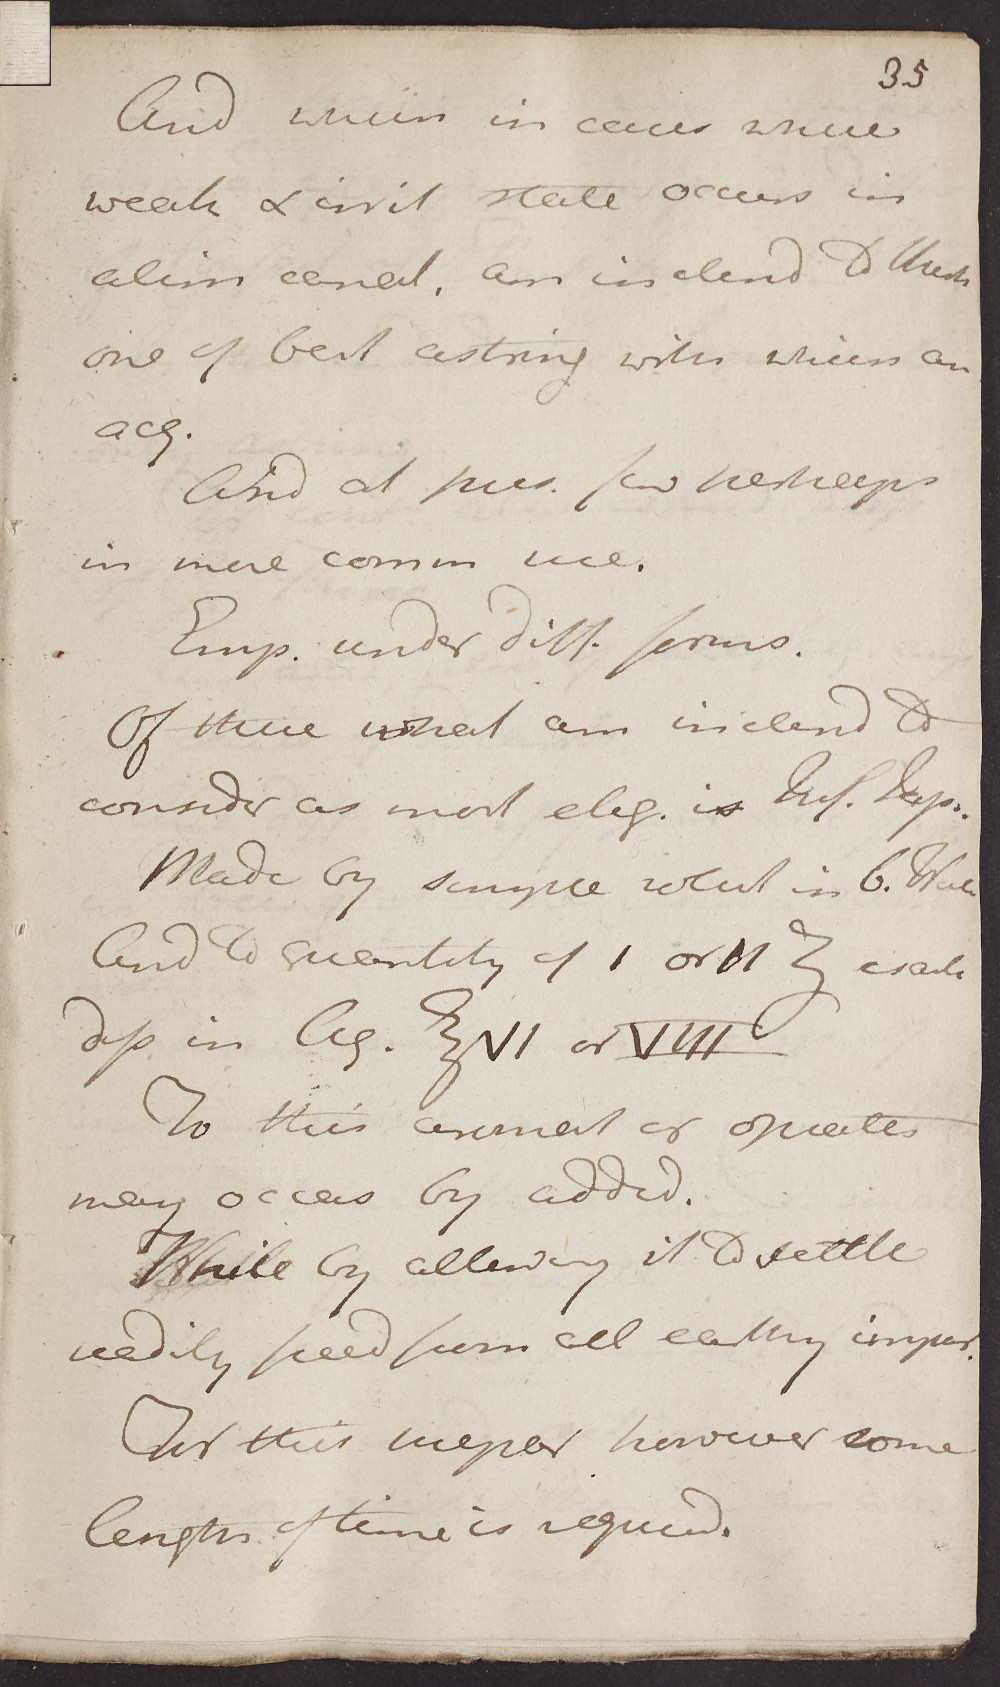 35
And when in cases where
weak & irrit state occurs in
alim canal. am inclend to think
one of best astring with which am
acq.
And at pres. few perhaps
in more comm use.
Emp. under diff. forms.
Of these what am inclend to
consider as most eleg. is Inf. Jap.
Made by simple solut in b. Wat
And to quantity of I or II ʒ each
dip in liq. ℥ VI or VIII
To this aromat or opiates
may occas by added.
While by allowing it to settle
readily freed from all earthy impur.
For this purpose however some
length of time is requird.